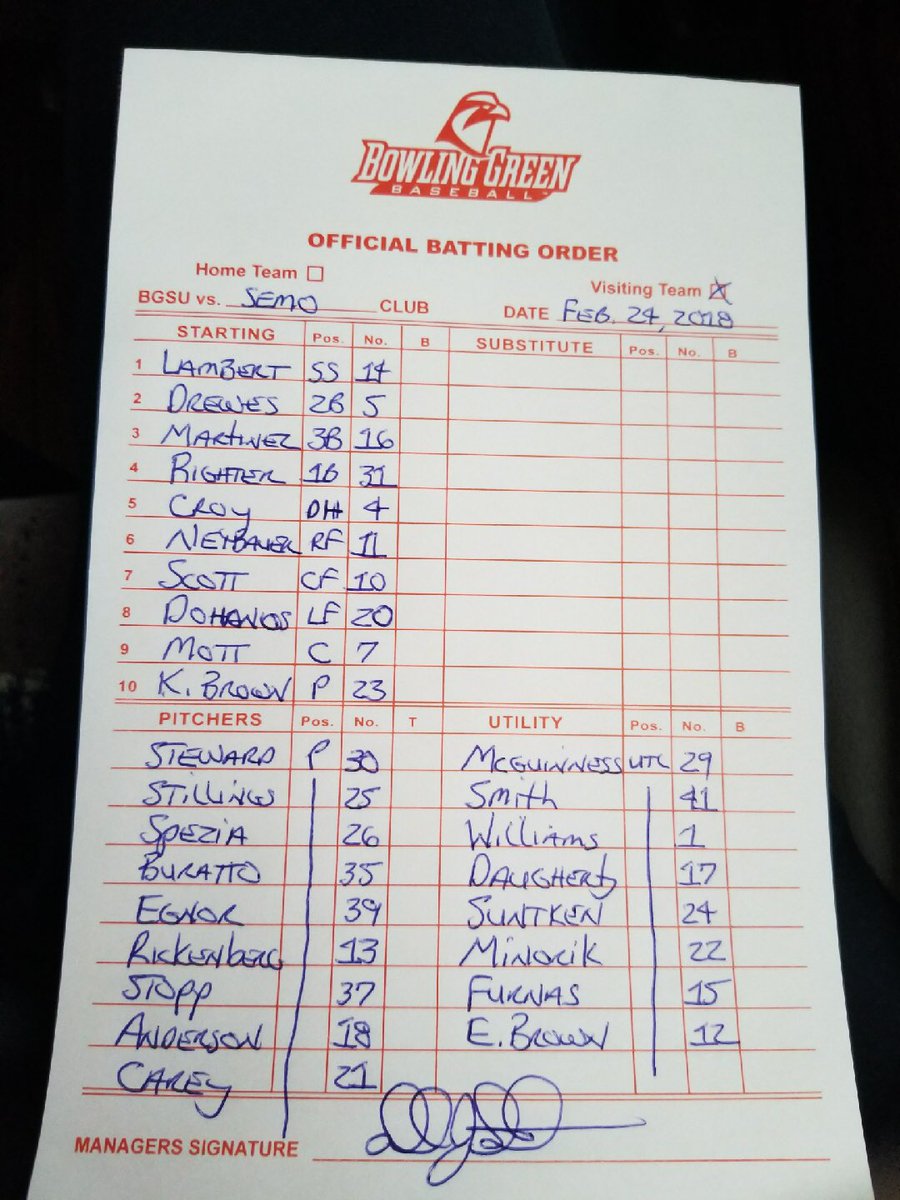 BOWLING GREEN
BASEBALL
OFFICIAL BATTING ORDER
Home Team Visiting Team
BGSU vs. SEMO CLUB DATE FEB. 24, 2018
STARTING Pos. No. B SUBSTITUTE Pos. No. B
1 LAMBERT SS 14
2 DREWES 2B 5
3 MARTINEZ 3B 16
4 RIGHTER 1B 31
5 CROY DH 4
6 NEYBAUER RF 11
7 SCOTT CF 10
8 DOHANOS LF 20
9 MOTT C 7
10 K. BROWN P 23
PITCHERS Pos. No. T UTILITY Pos. No. B
STEWARD P 30 MCGUINNESS UTL 29
STILLINGS 25 Smith 41
SPEZIA 26 Williams 1
BURATTO 35 DAUGHERTY 17
EGNOR 39 SUNTKEN 24
RICKENBERG 13 MINORIK 22
STOPP 37 FURNAS 15
ANDERSON 18 E. BROWN 12
CAREY 21
MANAGERS SIGNATURE